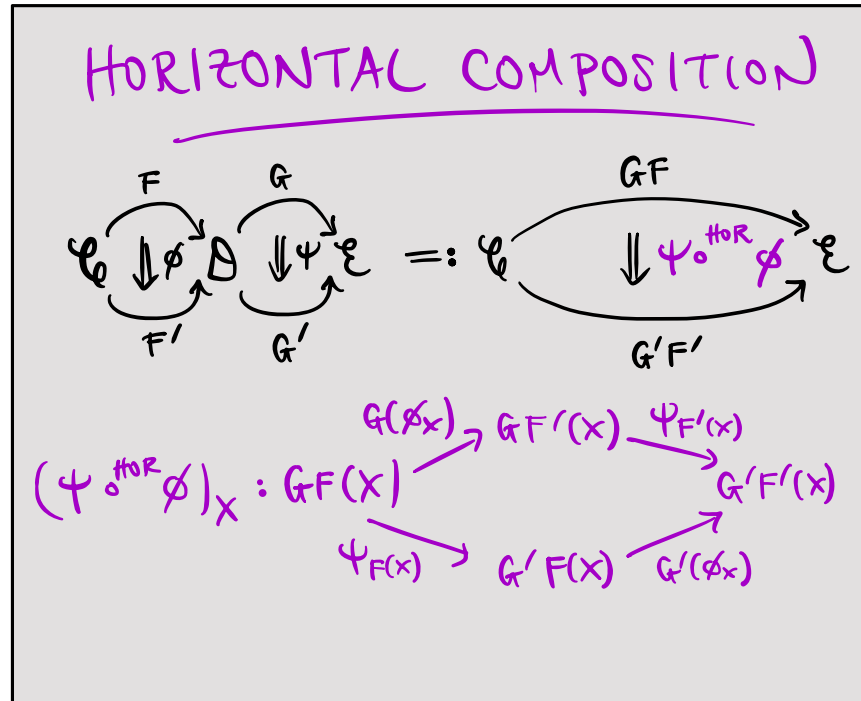 HORIZONTAL COMPOSITION
F G GF
𝒞 ⇓ϕ D ⇓ψ ℰ =: 𝒞 ⇓ ψ∘ᴴᴼᴿϕ ℰ
F' G' G'F'
G(ϕx) GF'(X) ψF'(x)
(ψ∘ᴴᴼᴿϕ)X : GF(X) G'F'(X)
ψF(x) G'F(X) G'(ϕx)